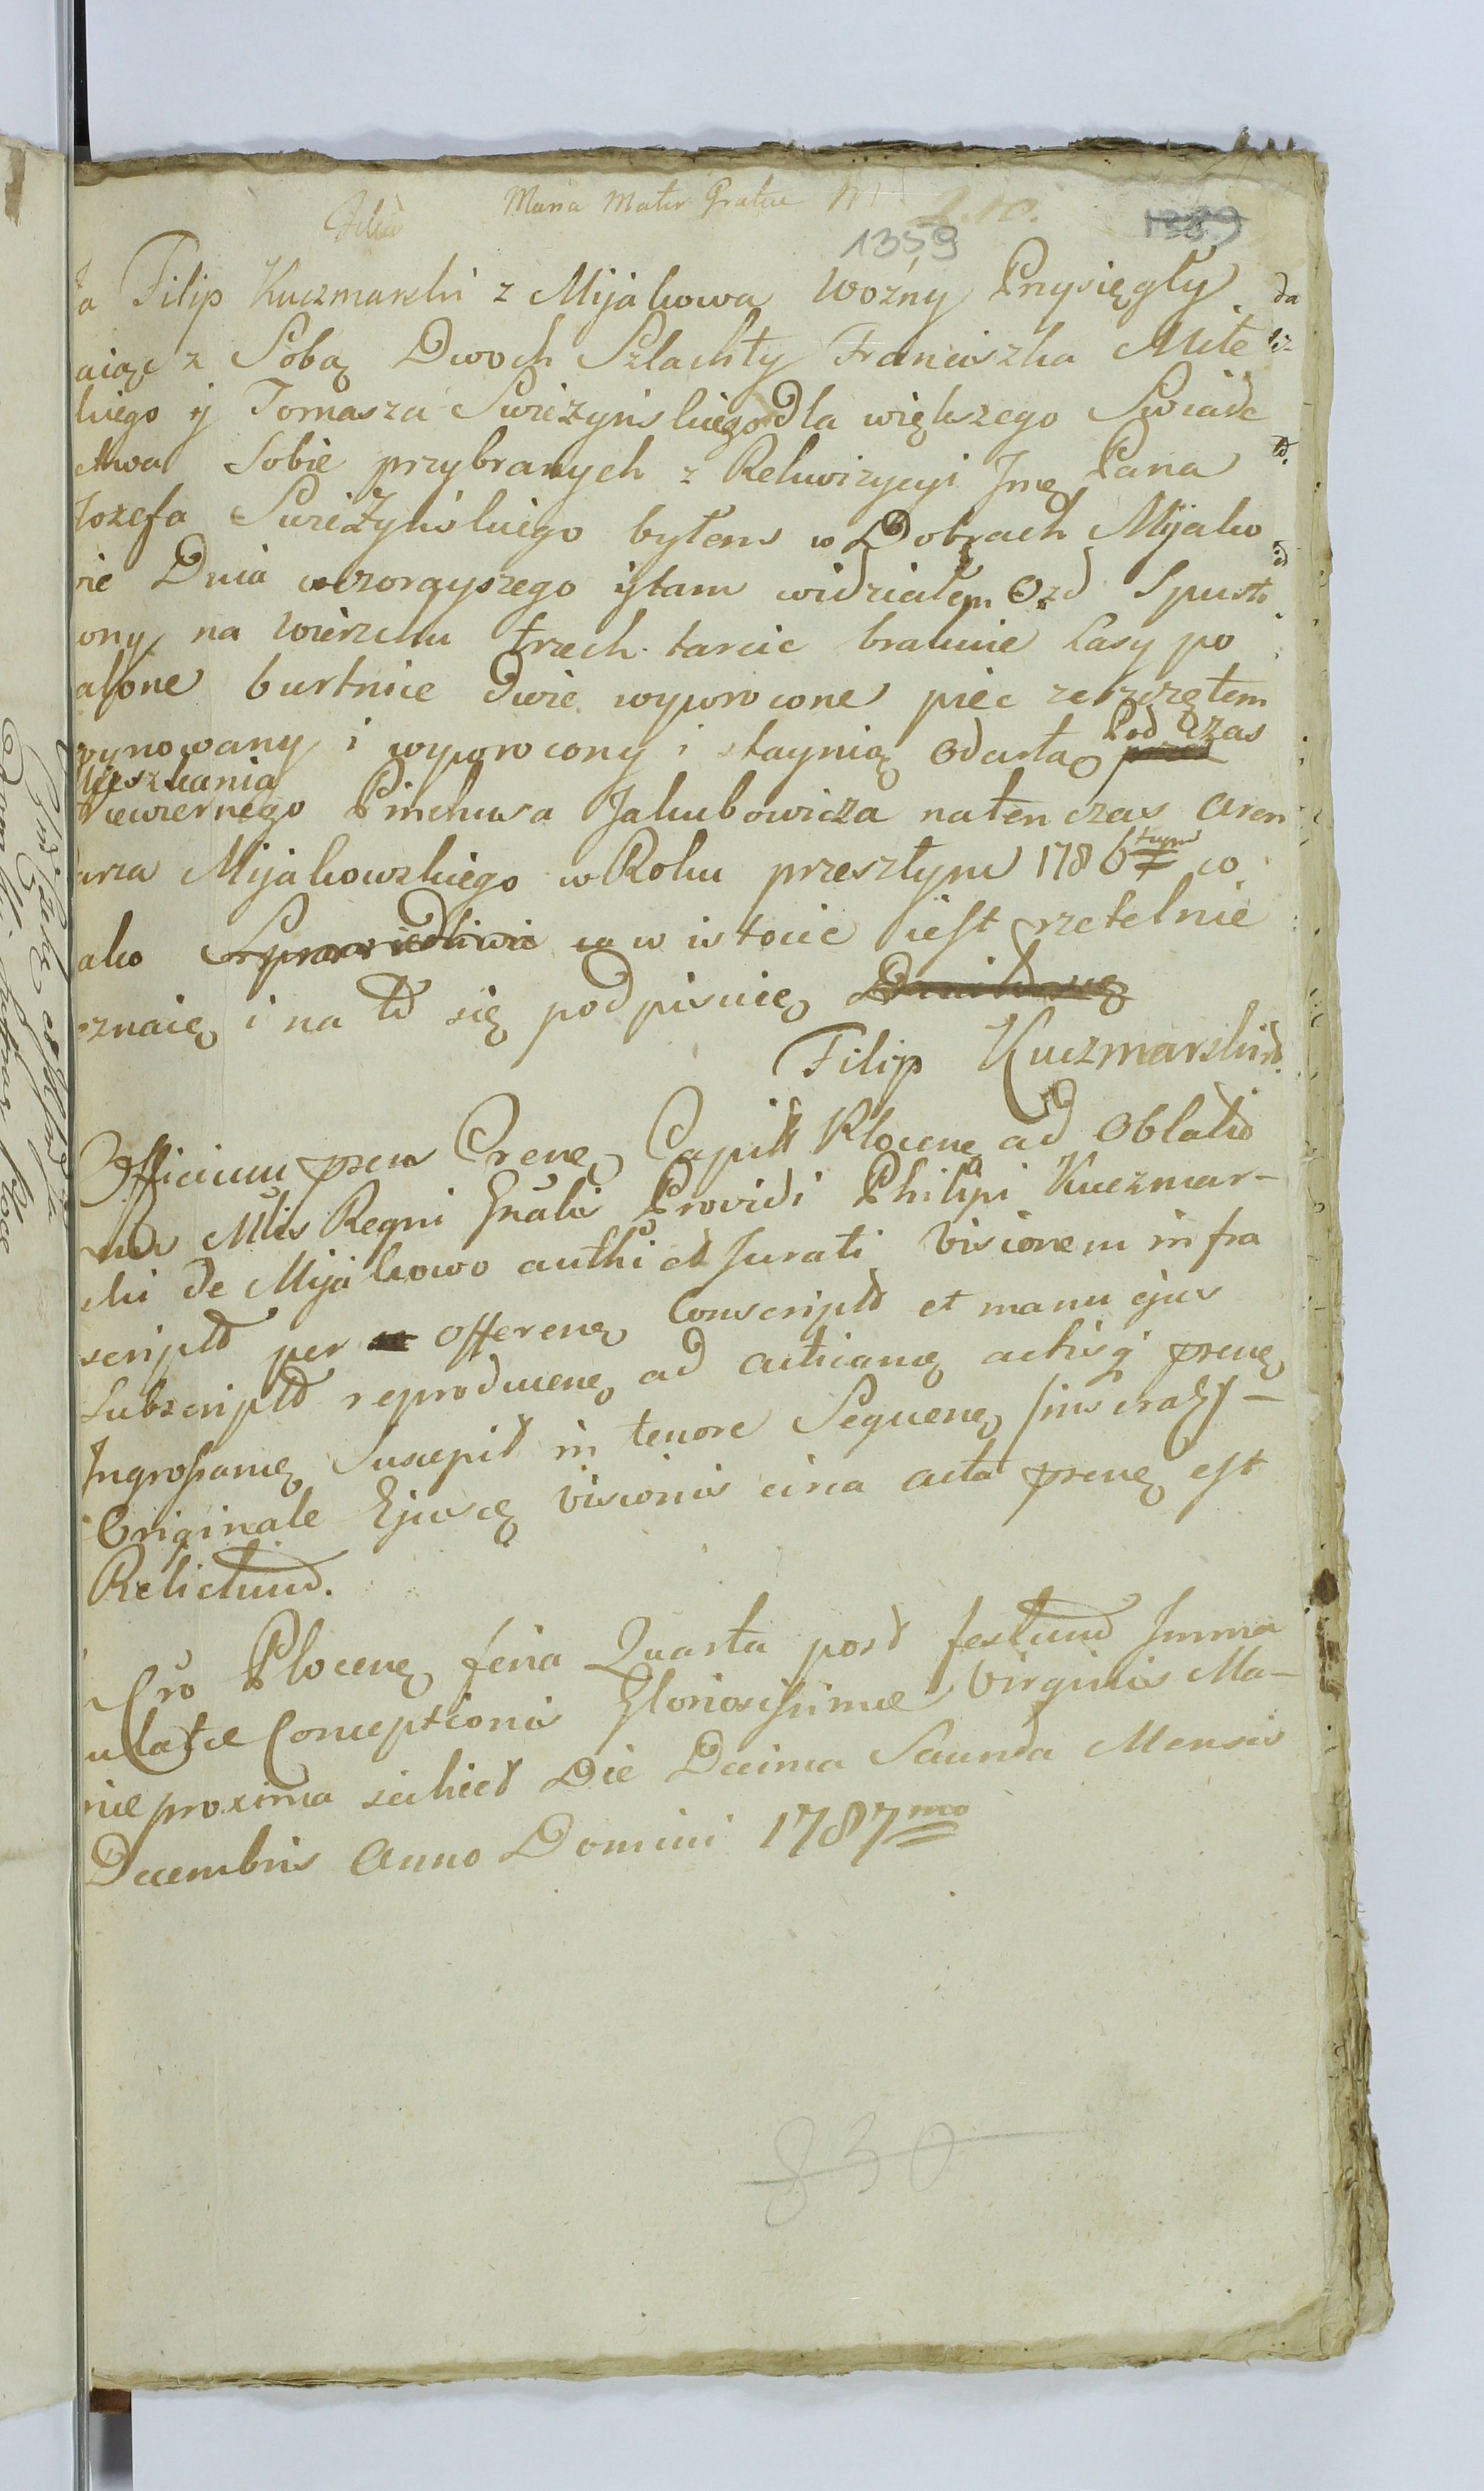 Maria Mater Gratiae
1359 1389
a Filip Kuczmarski z Mijakowa Wozny Przysięgły
aiąc z Sobą Dwoch Szlachty Franciszka Mile
kiego y Tomasza Swiezynskiego dla większego Swiade
ctwa Sobie przybranych z Rekwizycyi Jmę Pana
Jozefa Swiezynskiego byłem w Dobrach Mijako
wie Dnia wczorayszego y tam widziałem Ozd Spusto
ony na wierzchu trzech tarcic braknie Lasy po
alone burtnice dwie wywrocone piec ze szczętem
zynowany i wywrocony i staynią Odartą przed Pod Czas
Mieszkania
Niewiernego Pinchusa Jakubowicza na ten czas Aren
arza Mijakowskiego w Roku przeszłym 1786 tym co
ako Sprawiedliwie co w istocie iest rzetelnie
eznaię i na to się podpisuię
Filip Kuczmarski
Officium prens Crense Capit Plocense ad Oblatio
Mlis Regni Gnalis Providi Philipi Kuczmar-
ski de Mijakowo authi et Jurati Visionem infra
script per se offerens Conscript et manu ejus
Subscript reproducens ad acticans actisq prens
Ingrossans Suscepit in tenore Sequens
Originale Ejusce visionis circa acta prens est
Relictum.
Plocens feria Quarta post festum Imma
culatae Conceptionis Gloriosissimae Virginis Ma-
riae proxima scilicet Die Decima Secunda Mensis
Decembris Anno Domini 1787mo
830